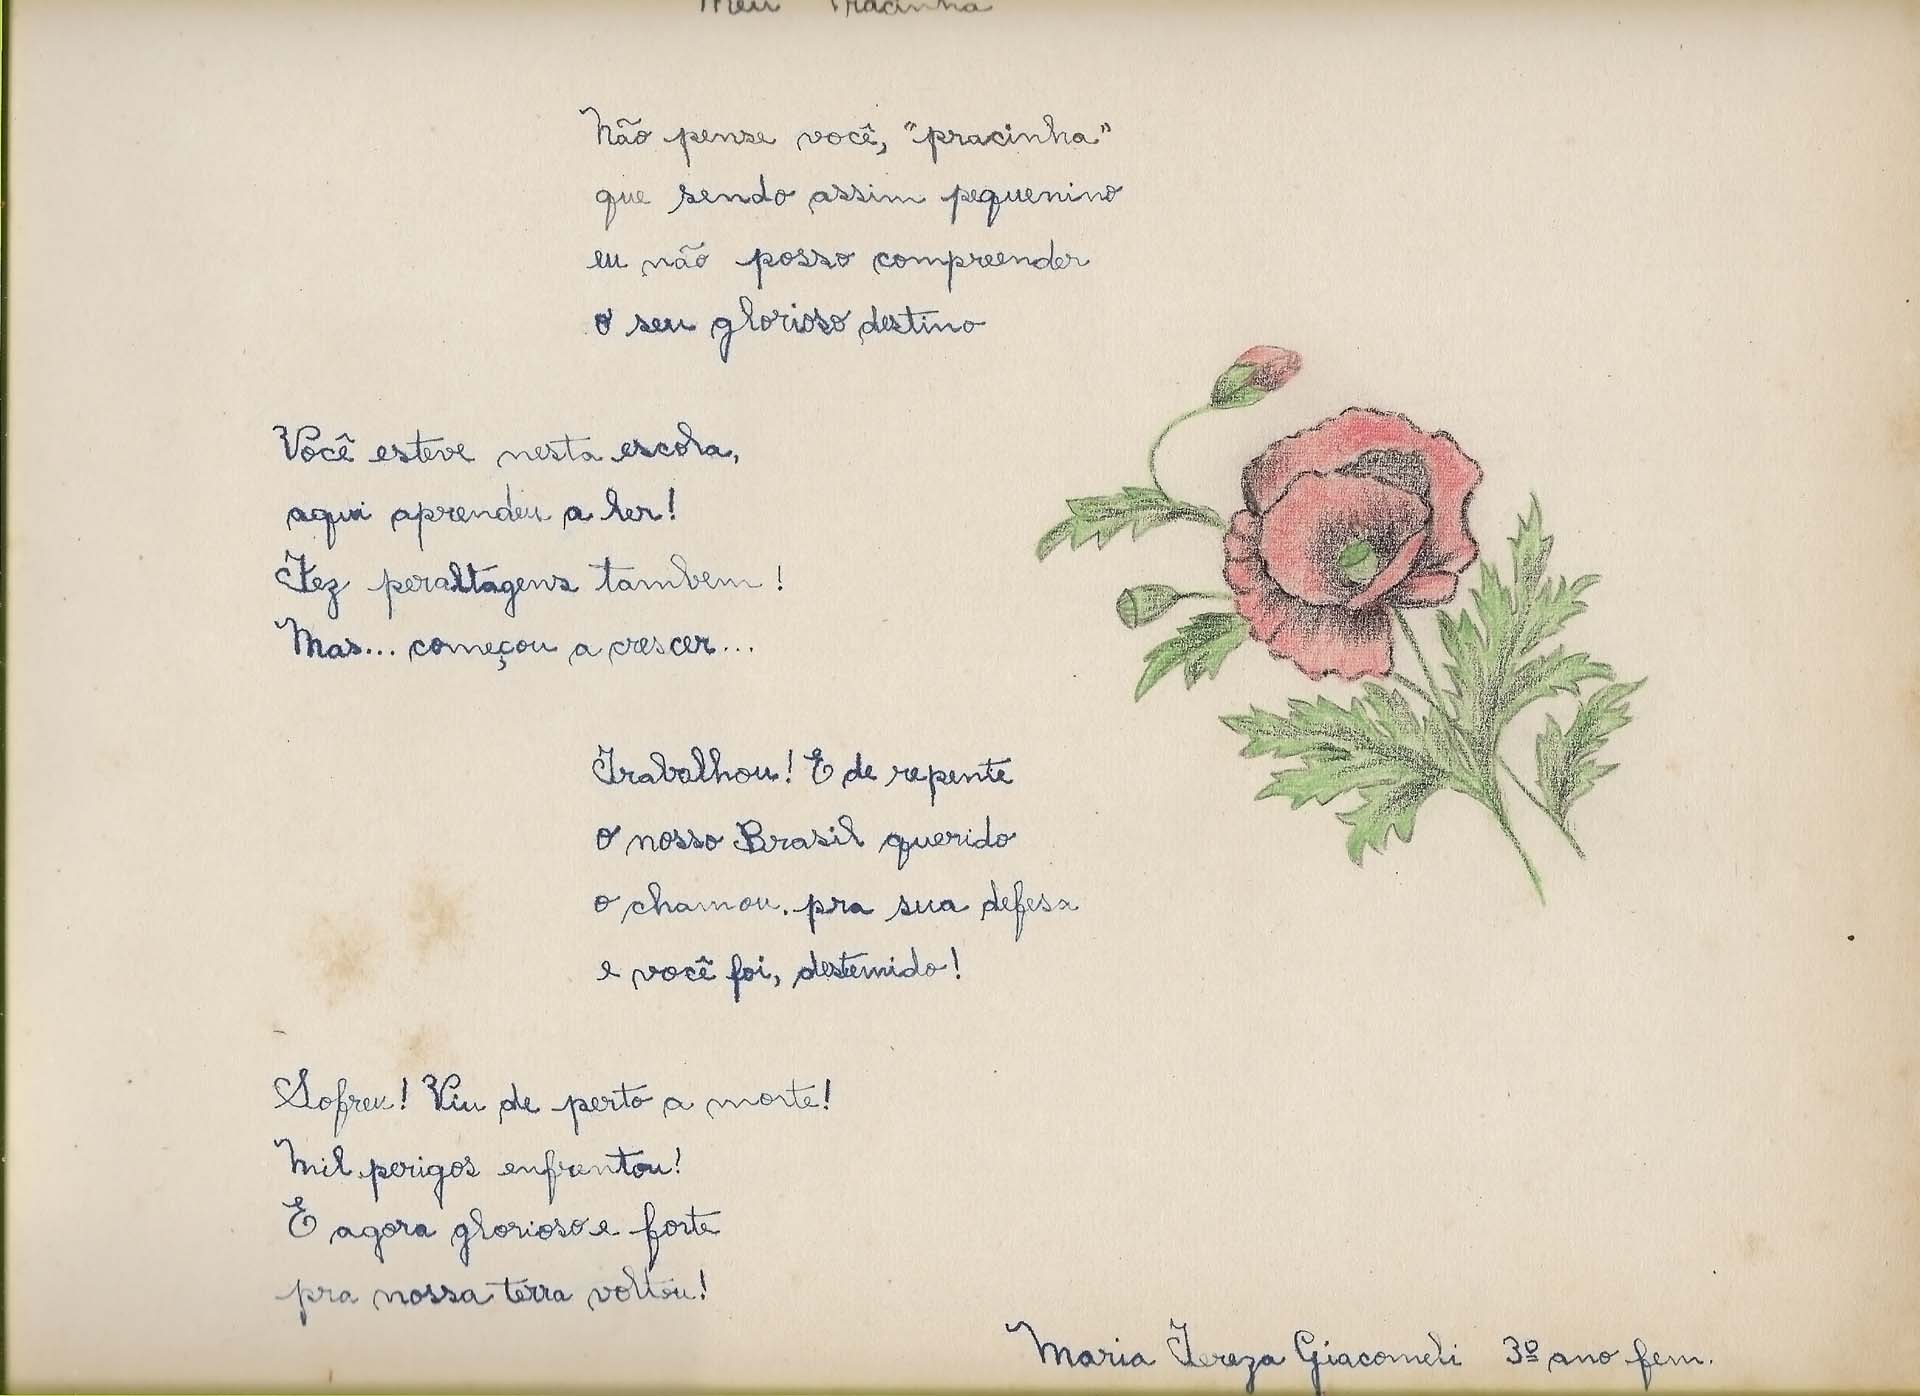 Meu Pracinha
Não pense você, "pracinha"
que sendo assim pequenino
eu não posso compreender
o seu glorioso destino
Você esteve nesta escola,
aqui aprendeu a ler!
Fez peraltagens tambem!
Mas... começou a crescer...
Trabalhou! E de repente
o nosso Brasil querido
o chamou pra sua defesa
e você foi, destemido!
Sofreu! Viu de perto a morte!
Mil perigos enfrentou!
E agora glorioso e forte
pra nossa terra voltou!
Maria Tereza Giacomeli 3º ano fem.